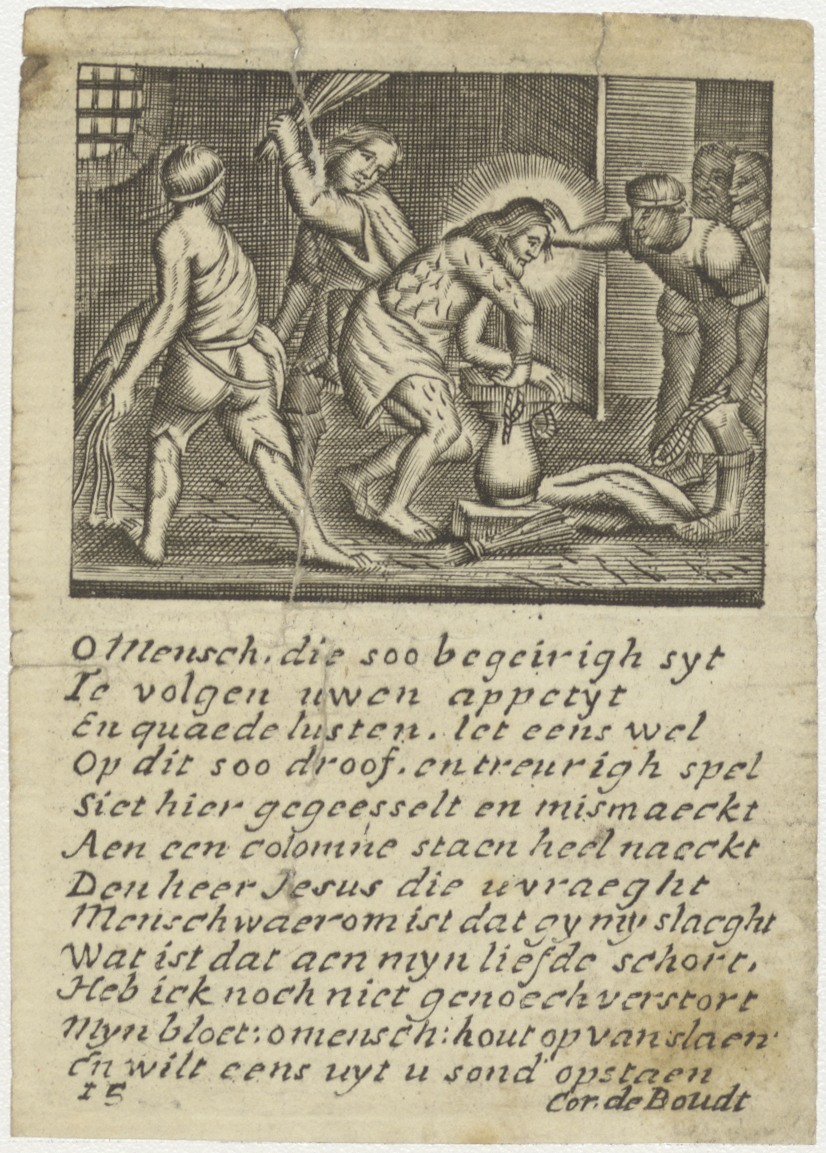 O Mensch, die soo begeirigh syt
Te volgen uwen appetyt
En quaede lusten, let eens wel
Op dit soo droof, en treurigh spel
Siet hier gegeesselt en mismaeckt
Aen een colomne staen heel naeckt
Den heer Jesus die u vraeght
Mensch waerom ist dat gy my slaeght
Wat ist dat aen myn liefde schort,
Heb ick noch niet genoech verstort
Myn bloet: o mensch: hout op van slaen
En wilt eens uyt u sond' opstaen
15
Cor. de Boudt